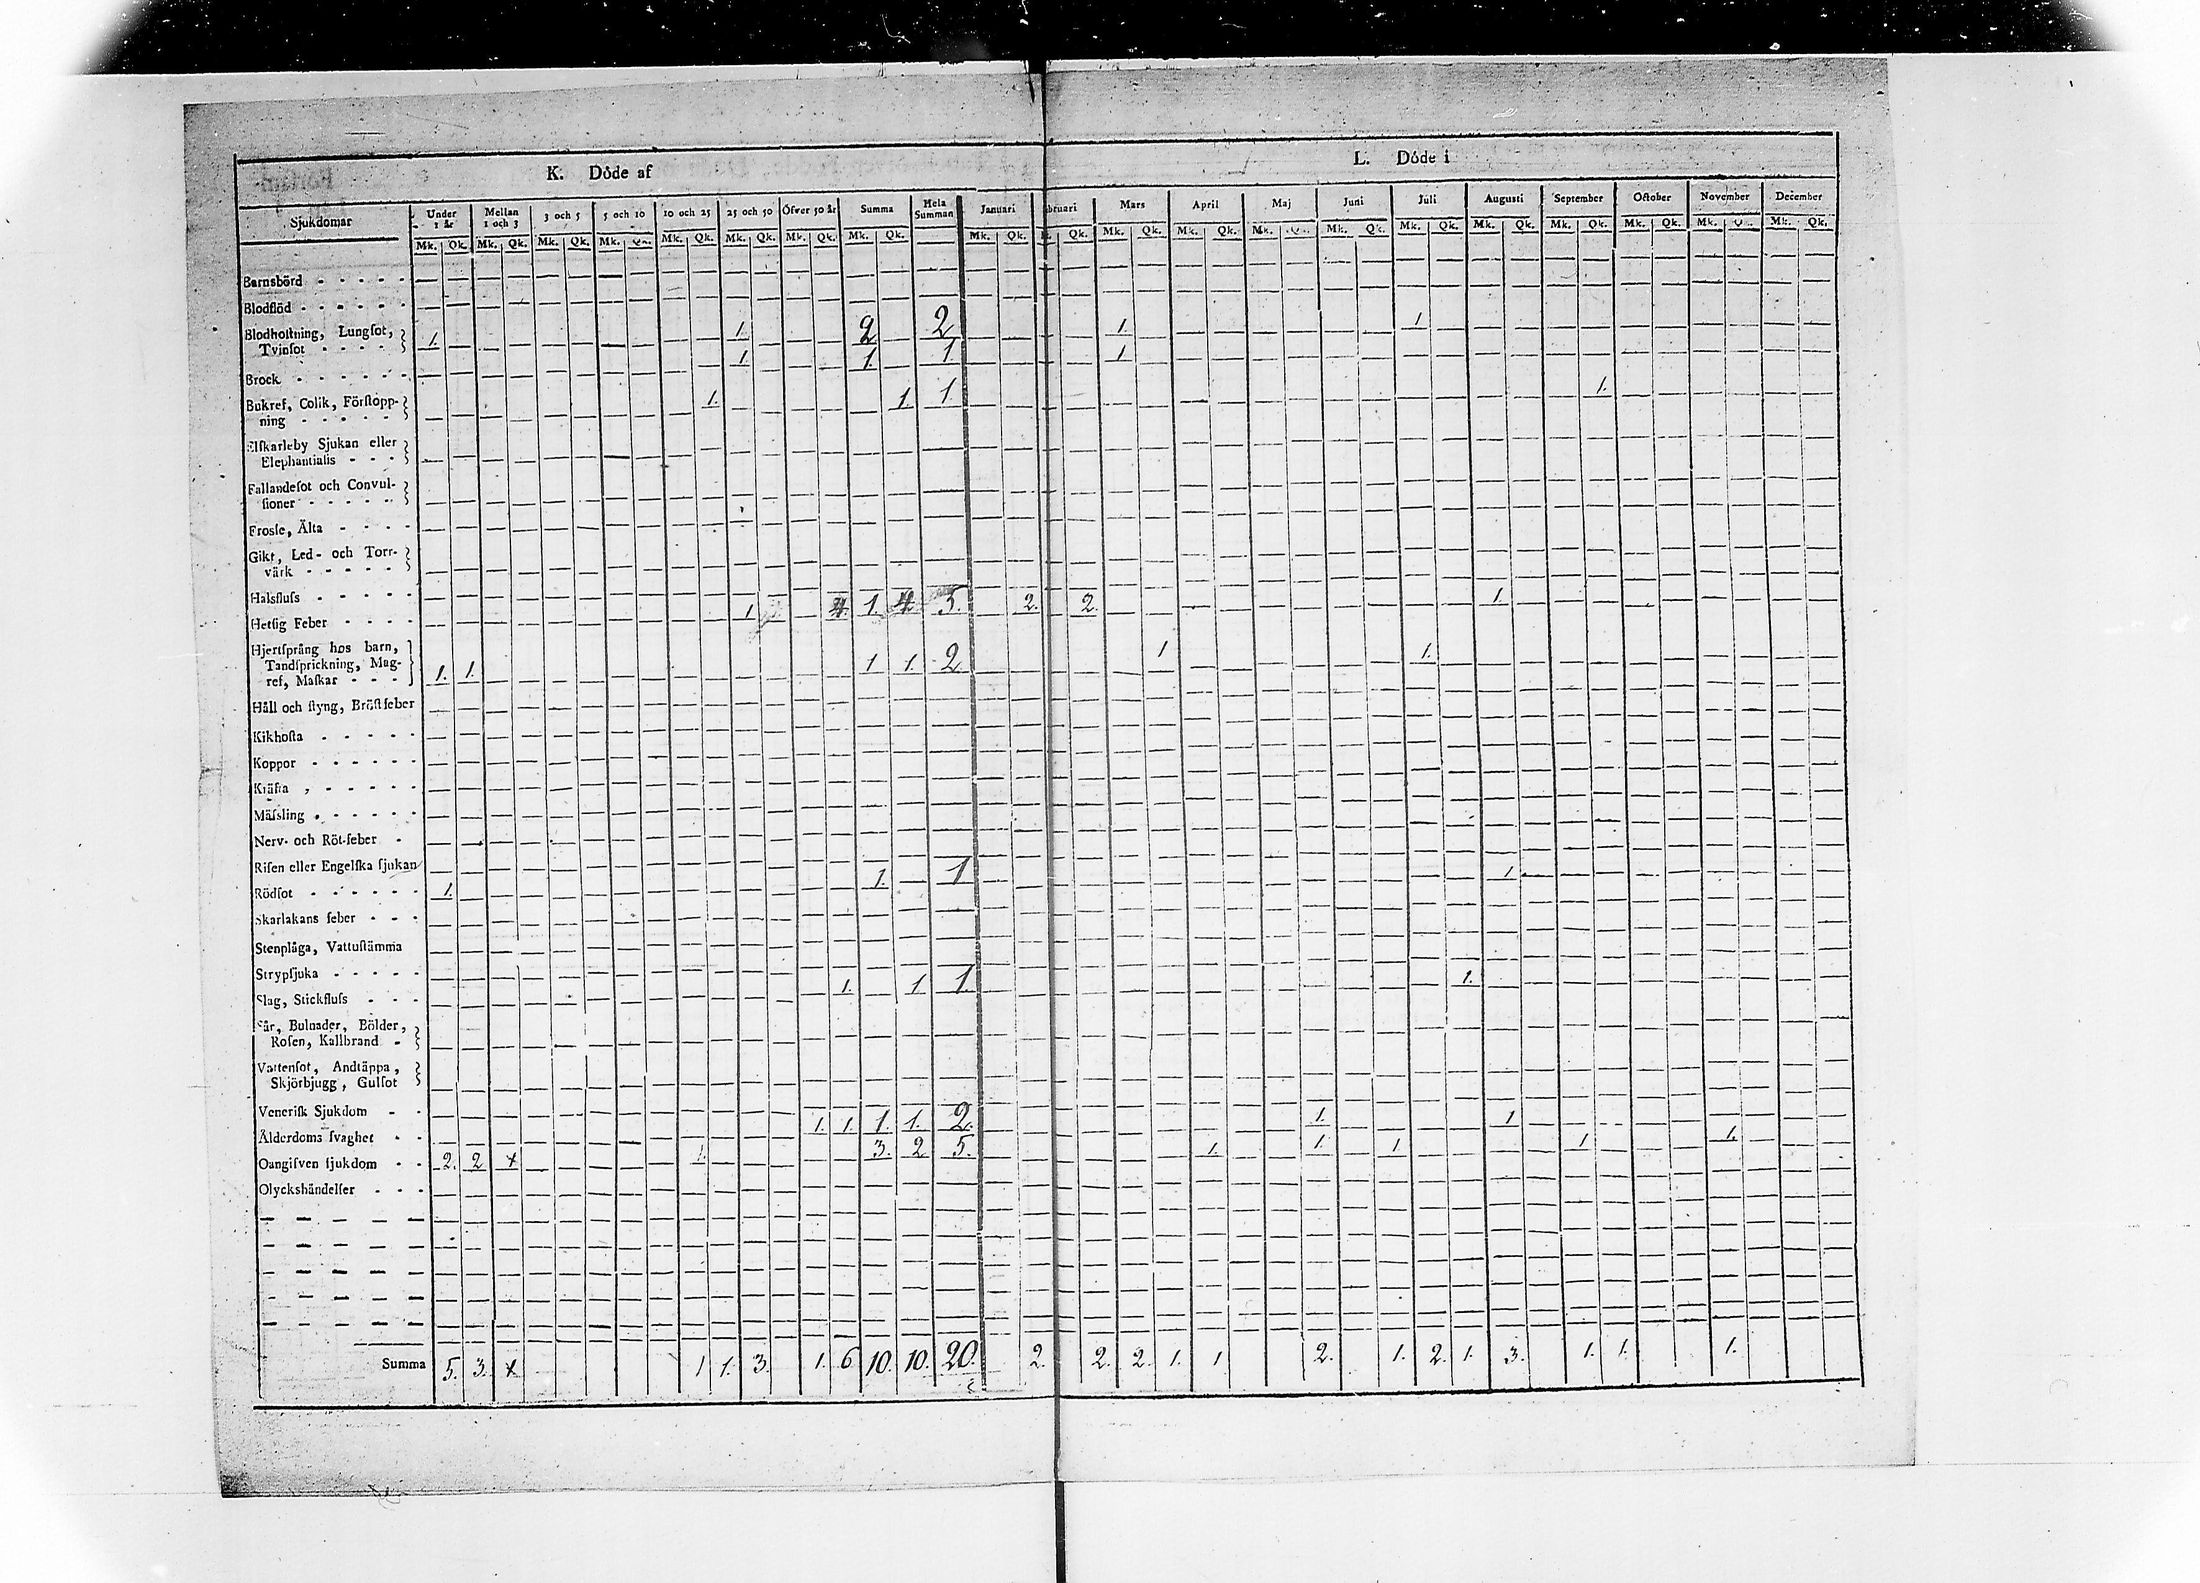 K. Döde af
L. Döde i
Sjukdomar
Under 1 år
Mellan 1 och 3
3 och 5
5 och 10
10 och 25
25 och 50
Öfver 50 år
Summa
Hela Summan
Januari
bruari
Mars
April
Maj
Juni
Juli
Augusti
September
October
November
December
Mk. Qk. Mk. Qk. Mk. Qk. Mk. Qk. Mk. Qk. Mk. Qk. Mk. Qk. Mk. Qk. Mk. Qk. Qk. Mk. Qk. Mk. Qk. Mk. Qk. Mk. Qk. Mk. Qk. Mk. Qk. Mk. Qk. Mk. Qk. Mk. Qk. Mk. Qk.
Barnsbörd - - - - -
Blodflöd - - - - - -
Blodhoſtning, Lungſot,
Tvinſot - - - - 1. 1. 2 2 1. 1
Brock - - - - - - 1. 1. 1 1
Bukref, Colik, Förſtopp-
ning - - - - - 1. 1. 1 1.
Elſkarleby Sjukan eller
Elephantiaſis - - -
Fallandeſot och Convul-
ſioner - - - - -
Froſſe, Älta - - - -
Gikt, Led- och Torr-
värk - - - - -
Halsfluſs - - - - -
Hetſig Feber - - - - 1. 4. 1. 4. 5. 2. 2. 1.
Hjertſprång hos barn,
Tandſprickning, Mag-
ref, Maſkar - - - 1. 1. 1 1. 2 1 1.
Håll och ſtyng, Bröſtfeber
Kikhoſta - - - - -
Koppor - - - - - -
Kräfta - - - - -
Mäſsling - - - - -
Nerv- och Röt-feber -
Riſen eller Engelſka ſjukan
Rödſot - - - - - - 1. 1. 1 1
Skarlakans feber - - -
Stenplåga, Vattuſtämma
Strypſjuka - - - - -
Slag, Stickfluſs - - - 1. 1 1. 1.
Sår, Bulnader, Bölder,
Roſen, Kallbrand -
Vattenſot, Andtäppa,
Skjörbjugg, Gulſot
Veneriſk Sjukdom - -
Ålderdoms ſvaghet - - 1. 1. 1. 1. 2. 1. 1
Oangifven ſjukdom - - 2. 2 1. 3. 2 5. 1. 1. 1 1 1.
Olyckshändelſer - - -
Summa 5. 3. 1 1. 3. 1. 6 10. 10. 20. 2. 2. 2. 1. 1 2. 1. 2. 1. 3. 1. 1. 1.